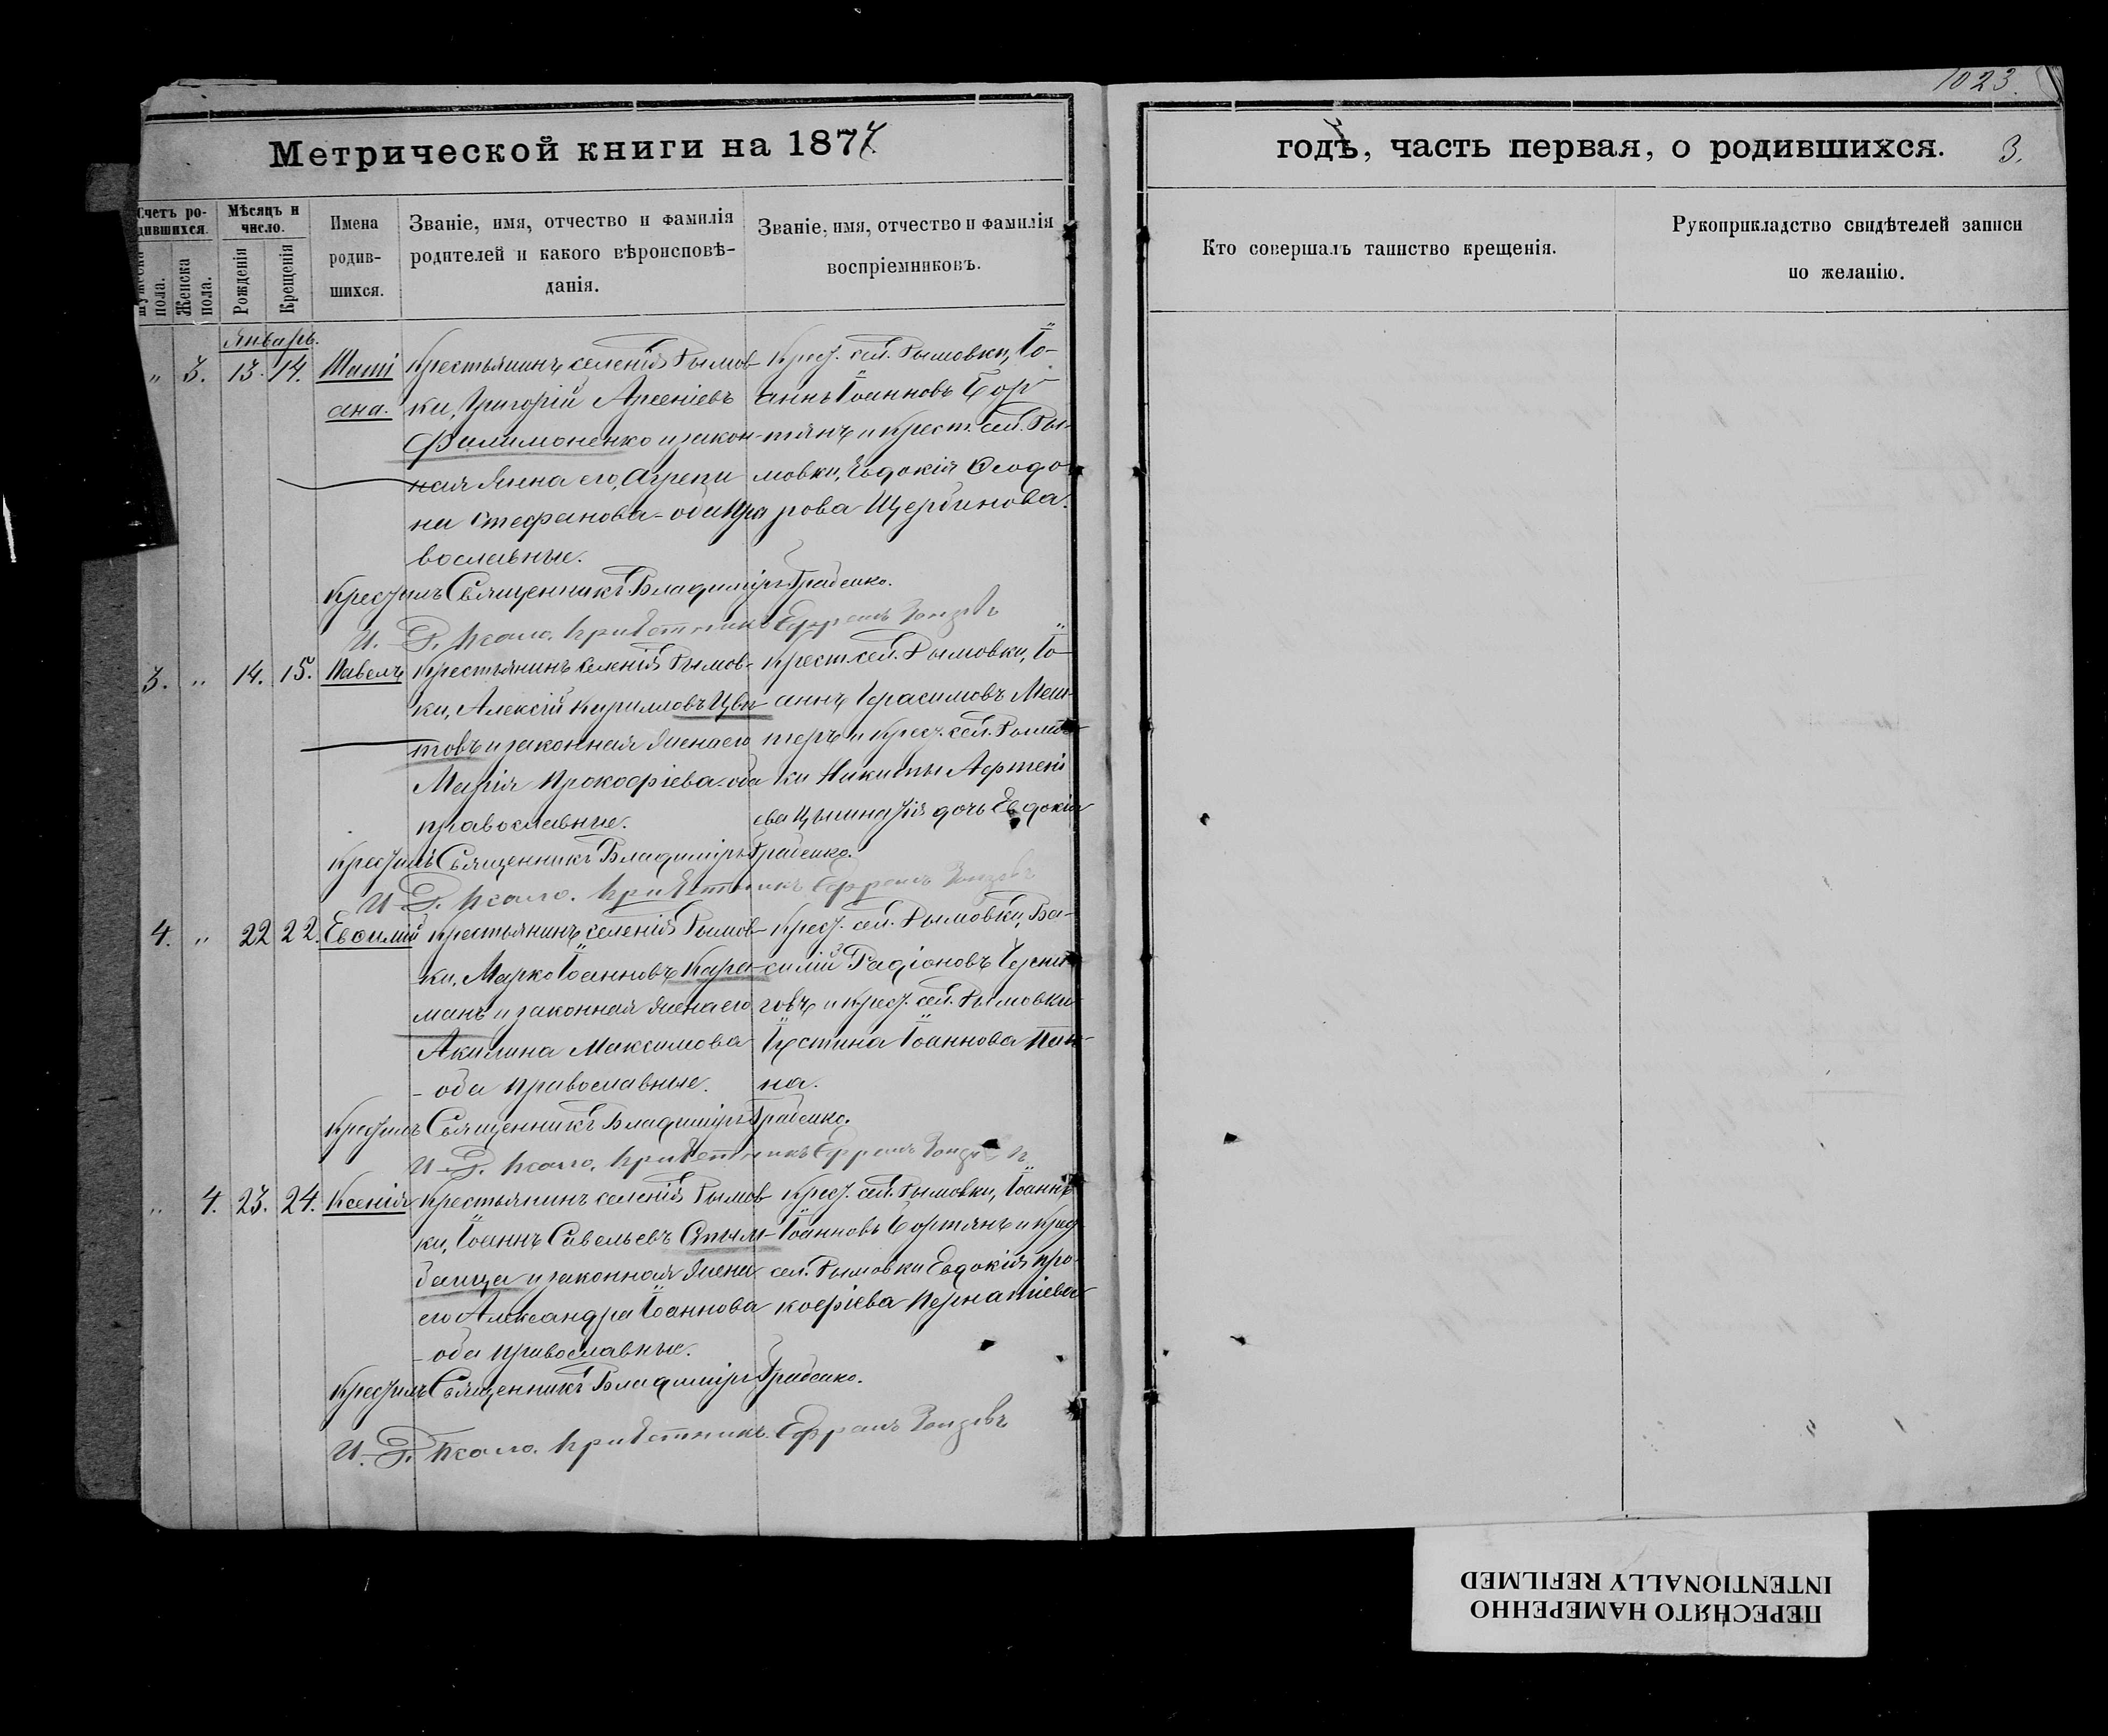 1023.
Метрической книги на 1877
годѣ, часть первая, о родившихся. 3.
Счетъ ро-
дившихся.
Мужеска
пола.
Женска
пола.
Мѣсяцъ и
число.
Рожденія
Крещенія
Имена
родив-
шихся.
Званіе, имя, отчество и фамилія
родителей и какого вѣроисповѣ-
данія.
Званіе, имя, отчество и фамилія
воспріемниковъ.
Кто совершалъ таинство крещенія.
Рукоприкладство свидѣтелей записи
по желанію.
Январь.
„ 3. 13. 14.
Таті
ана.
Крестьянинъ селенія Рымов
ки, Григорій Арсеніевъ
Филимоненко и закон-
ная жена его, Агрепи
на Стефанова - оба пра
вославные.
Крест. сел. Рымовки, Іо-
аннъ Іоанновъ Бор
тянъ и крест. сел. Ры-
мовки, Евдокія Ѳеодо
рова Щербинова.
Крестилъ Священникъ Владиміръ Грабенко.
И. Д. Псало. Причетникъ Ефремъ
3. „ 14. 15.
Павелъ
Крестьянинъ селенія Рымов-
ки, Алексій Кирилловъ Цвѣ
товъ и законная жена его
Марія Прокофіева - оба
православные.
Крест. сел. Рымовки, Іо-
аннъ Герасимовъ Меш-
теръ и крест. сел. Рымов
ки Никиты Афтені
ева дочь Евдокія
Крестилъ Священникъ Владиміръ Грабенко.
И. Д. Псало. Причетникъ Ефремъ
4. „ 22 22.
Евѳимій
Крестьянинъ селенія Рымов-
ки, Марко Іоанновъ Кара-
манъ и законная жена его
Акилина Максимова
- оба православные.
Крест. сел. Рымовки, Ва-
силій Радіоновъ
говъ и крест. сел. Рымовки
Іустина Іоаннова
на.
Крестилъ Священникъ Владиміръ Грабенко.
И. Д. Псало. Причетникъ Ефремъ
„ 4. 23. 24.
Ксенія
Крестьянинъ селенія Рымов
ки, Іоаннъ Савельевъ
и законная жена
его Александра Іоаннова
- оба православные.
Крест. сел. Рымовки, Іоаннъ
Іоанновъ Бортянъ и крест
сел. Рымовки Евдокія Про-
кофіева
Крестилъ Священникъ Владиміръ Грабенко.
И. Д. Псало. Причетникъ. Ефремъ
ПЕРЕСНЯТО НАМЕРЕННО
INTENTIONALLY REFILMED